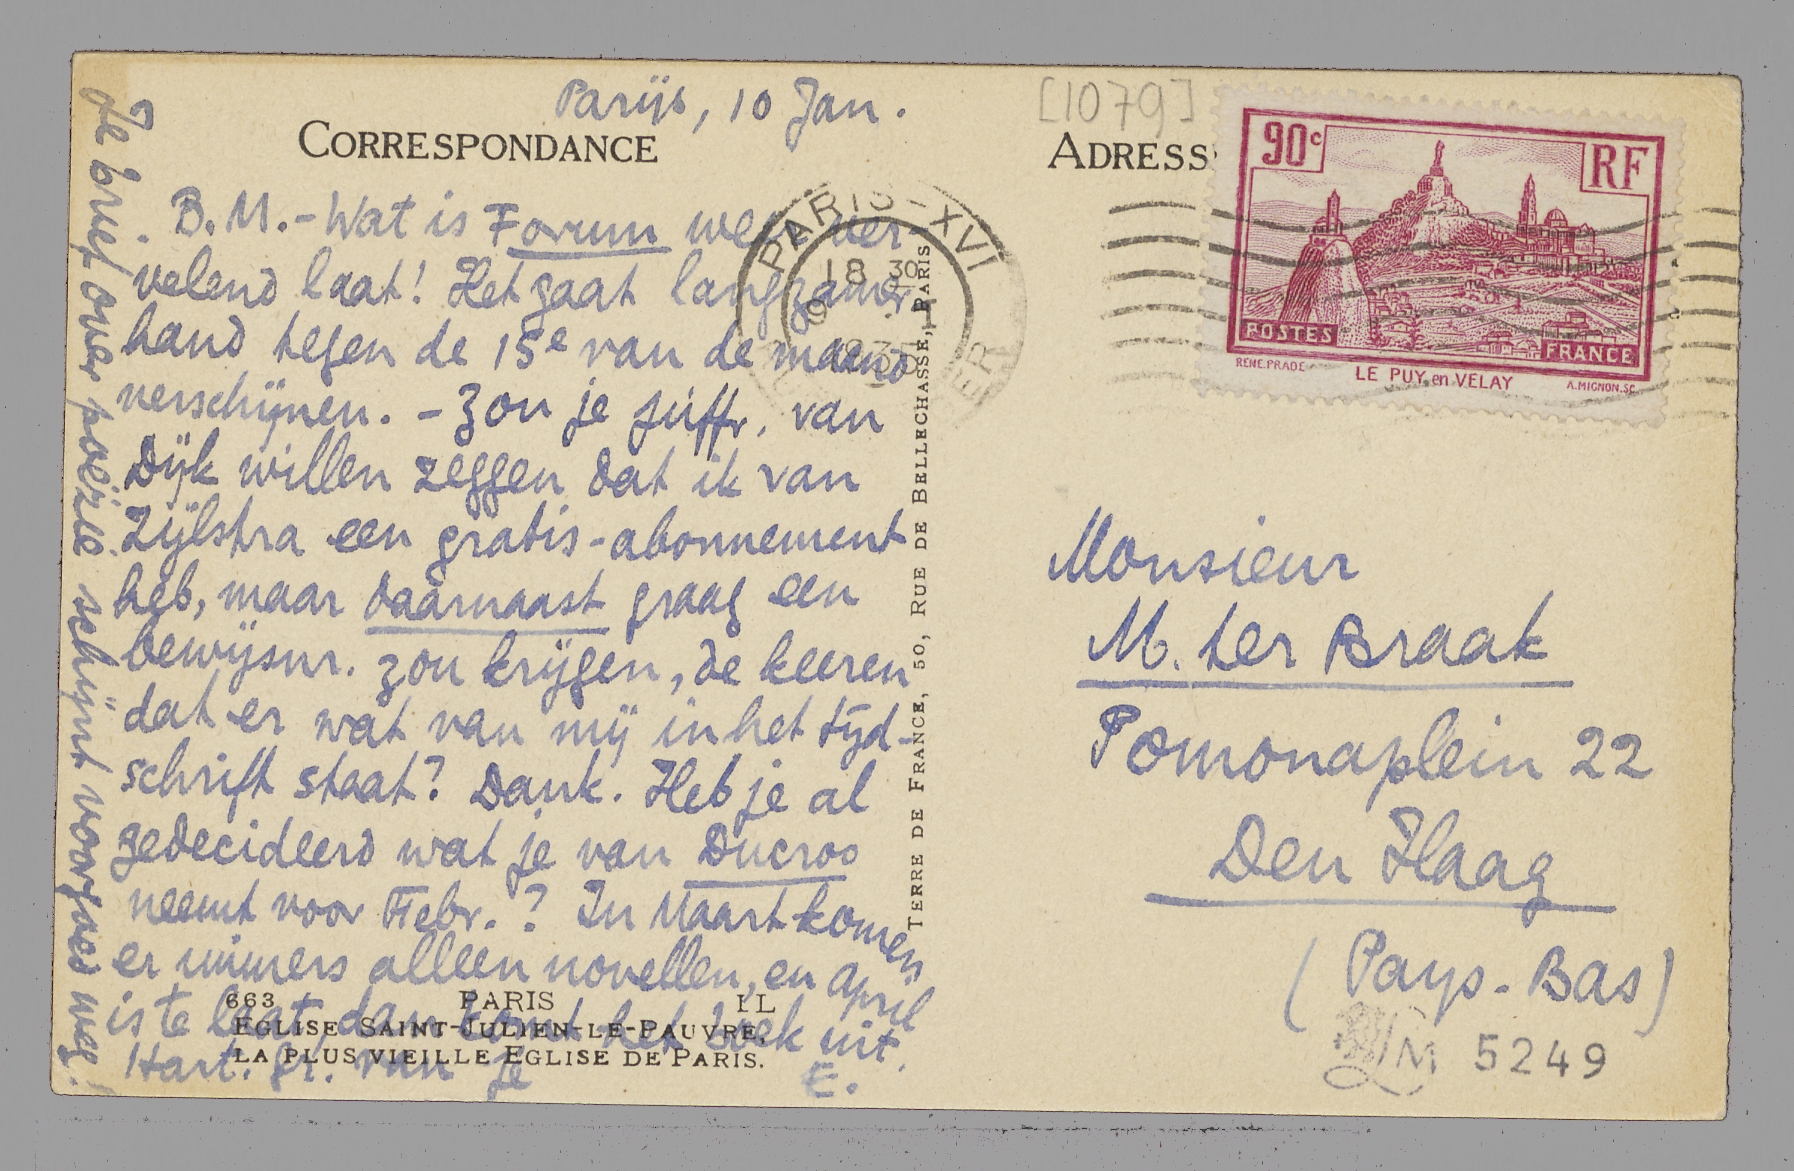 Parijs, 10 Jan.
CORRESPONDANCE
B.M. - Wat is Forum weer ver-
velend laat! Het gaat langzamer-
hand tegen de 15e van de maand
verschijnen. - Zou je Juffr. van
Dijk willen zeggen dat ik van
Zijlstra een gratis-abonnement
heb, maar daarnaast graag een
bewijsnr. zou krijgen, de keeren
dat er wat van mij in het tijd-
schrift staat? Dank. Heb je al
gedecideerd wat je van Ducroo
neemt voor Febr.? In Maart komen
er immers alleen novellen, en April
is te laat, dan komt het boek uit.
Hart. gr. van je
E.
Je brief over poëzie schijnt voorgoed weg!
663 PARIS IL
EGLISE SAINT-JULIEN-LE-PAUVRE,
LA PLUS VIEILLE EGLISE DE PARIS.
TERRE DE FRANCE, 50, RUE DE BELLECHASSE, PARIS
PARIS-XVI
18 30
[1079]
ADRESS
90c
RF
POSTES
FRANCE
RENE.PRADE
LE PUY en VELAY
A.MIGNON.SC.
Monsieur
M. ter Braak
Pomonaplein 22
Den Haag
(Pays-Bas)
LM 5249